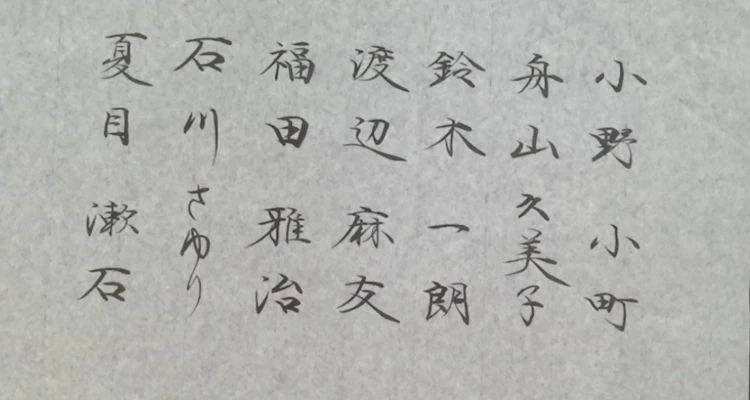 小野 小町
舟山 久美子
鈴木 一朗
渡辺 麻友
福田 雅治
石川 さゆり
夏目 漱石